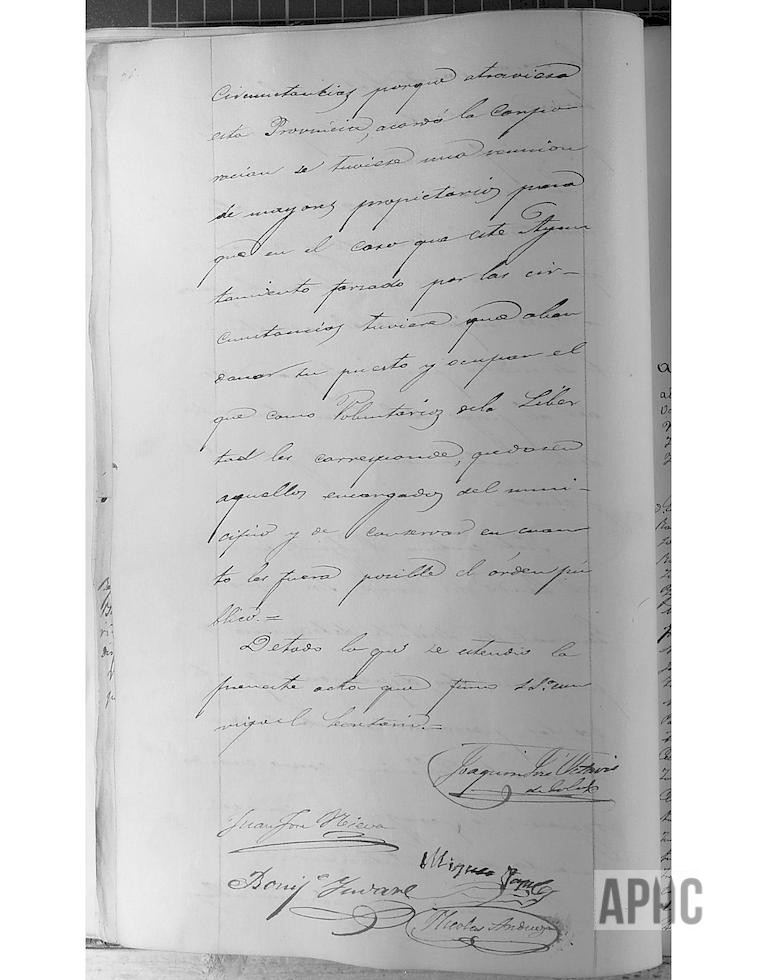 circunstancias porque atraviesa
esta Provincia, acordó la Corpo-
racion se tuviese una reunion
de mayores propietarios para
que en el caso que este Ayun
tamiento forzado por las cir-
cunstancias tuviere que aban
donar su puesto y ocupar el
que como Voluntarios de la Liber
tad les corresponde, quedasen
aquellos encargados del muni-
cipio y de conservar en cuan
to les fuera posible el órden pú
blico.=
De todo lo que se estendio la
presente acta que firma
Secretario.=
Joaquin José
Juan José Nieva
Miguel
Bonifº
Nicolas Andueza
APHC